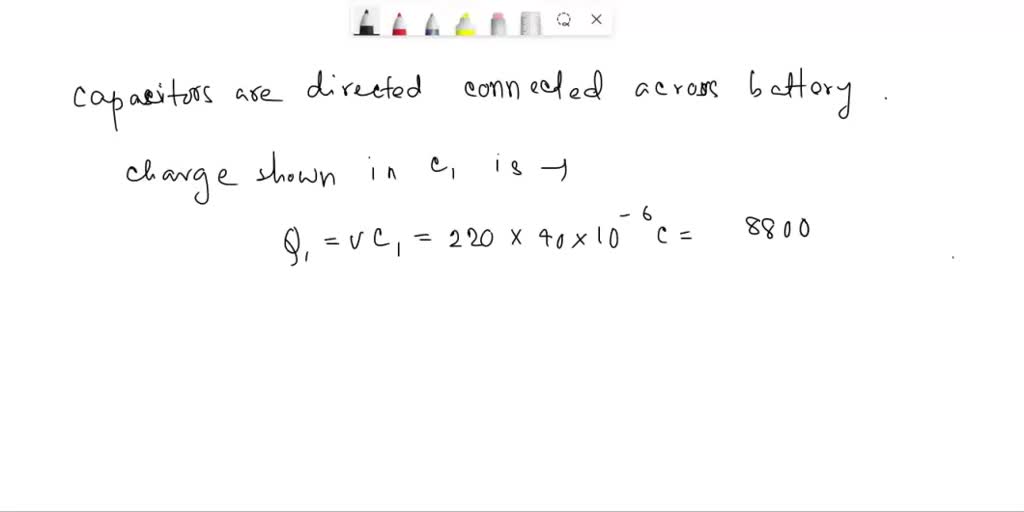 capacitors are directed connected across battory.
charge shown in C₁ is →
Q₁ = VC₁ = 220 × 40 × 10⁻⁶ C = 8800